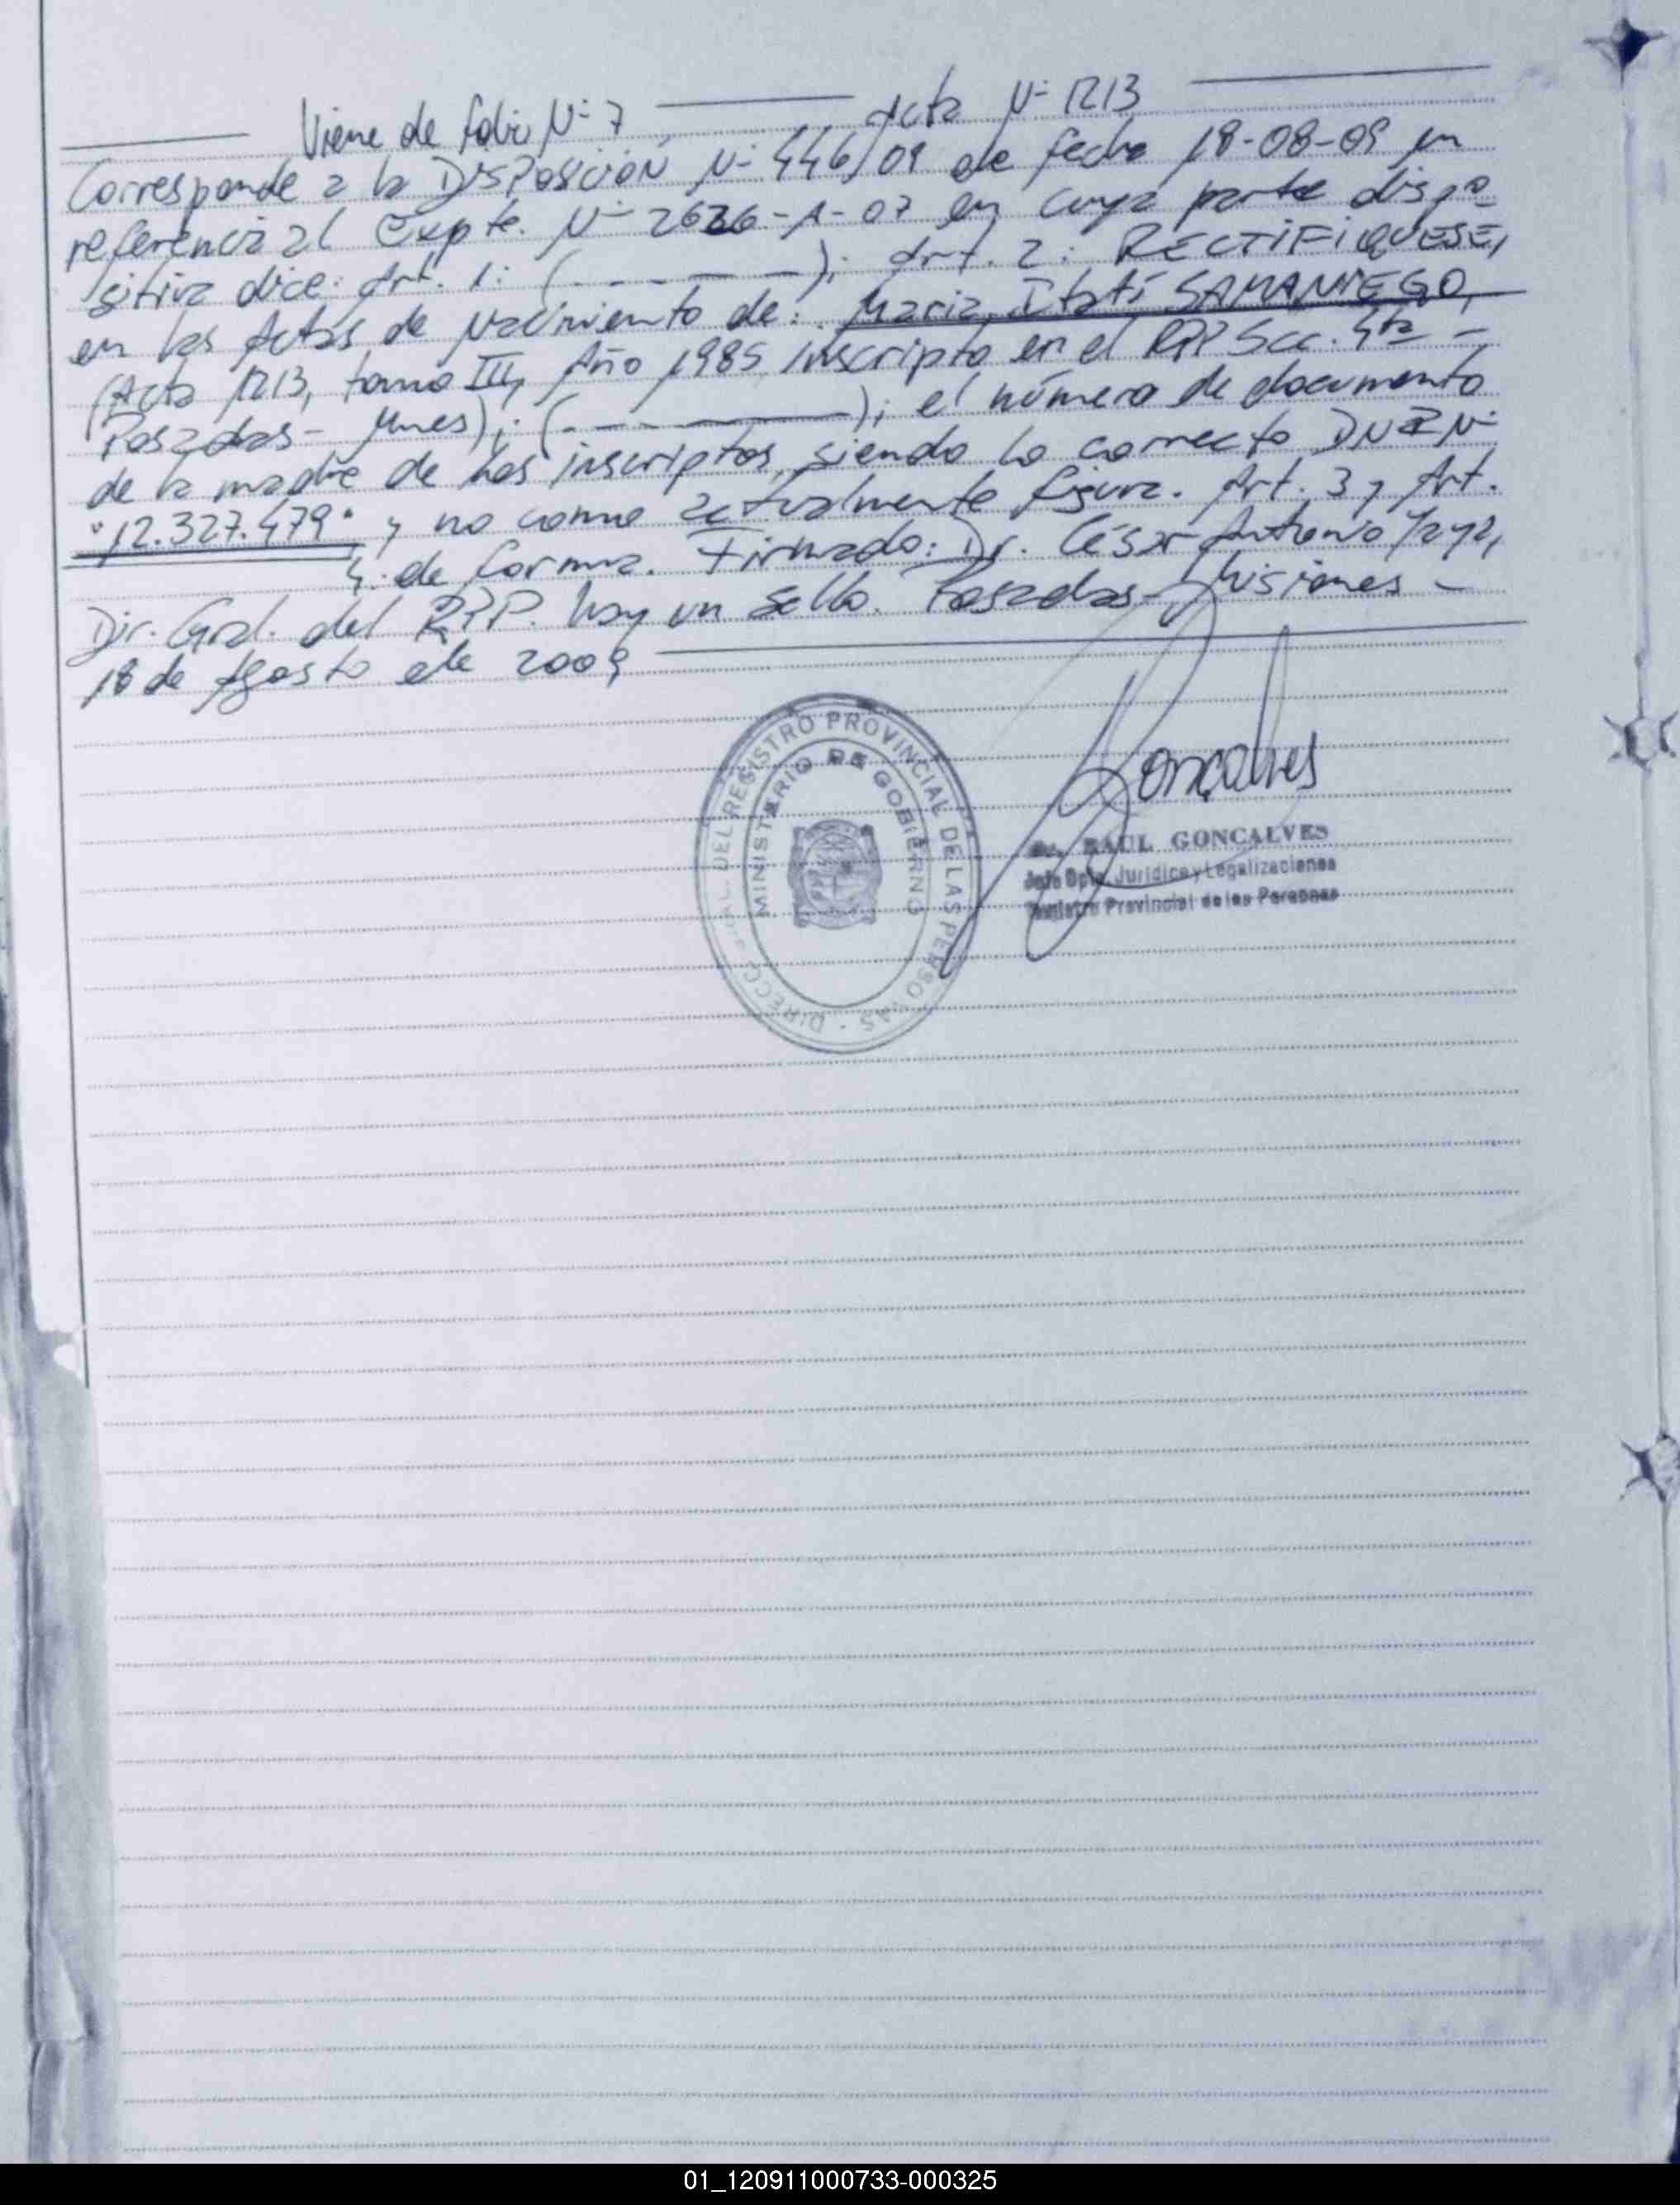 Viene de folio Nº 7 acta Nº 1213
Corresponde a la DISPOSICIÓN Nº 446/09 de fecha 18-08-09 en
referencia al Expte. Nº 2626-A-07 en cuya parte dispo
sitiva dice: Art. 1: (- - - - -); Art. 2: RECTIFIQUESE,
en las Actas de Nacimiento de: María Itatí SAMANIEGO,
(Acta 1213, tomo III, Año 1985, inscripto en el RPP Scc. 4ta -
Posadas - Mnes); (- - - -); el número de documento
de la madre de los inscriptos, siendo lo correcto DNI Nº
"12.327.479" y no como actualmente figura. Art. 3 y Art.
4: de forma. Firmado: Dr. César Antonio Yaya,
Dir. Gral. del RPP. hay un sello. Posadas - Misiones -
18 de Agosto de 2009
REGISTRO PROVINCIAL DE LAS PERSONAS
MINISTERIO DE GOBIERNO
Gonçalves
RAUL GONCALVES
Jefe Dpto. Juridico y Legalizaciones
Registro Provincial de las Personas
01_120911000733-000325